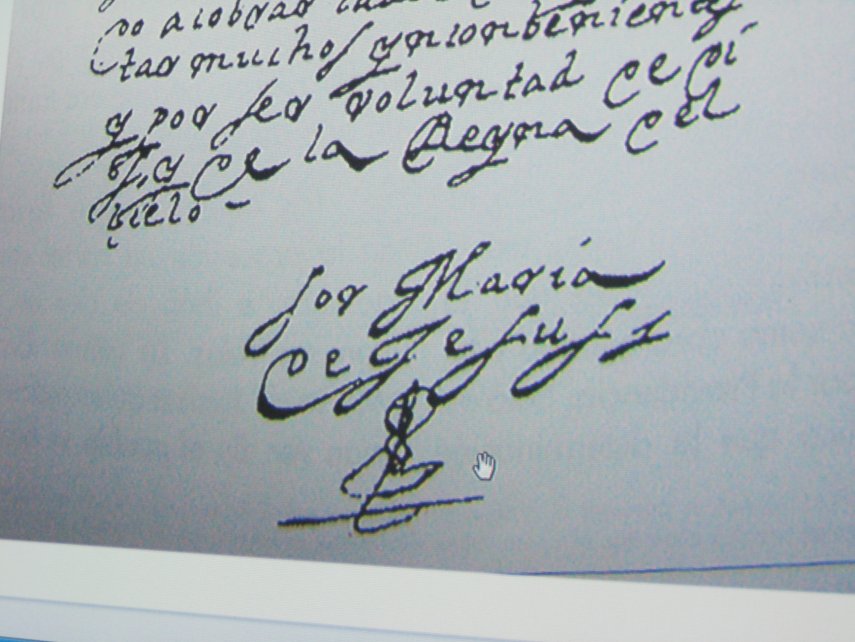 po a cobrar
tar muchos ynconbenientes
y por ser voluntad de Di
s, y de la Reyna del
Cielo -
sor María
de Jesus